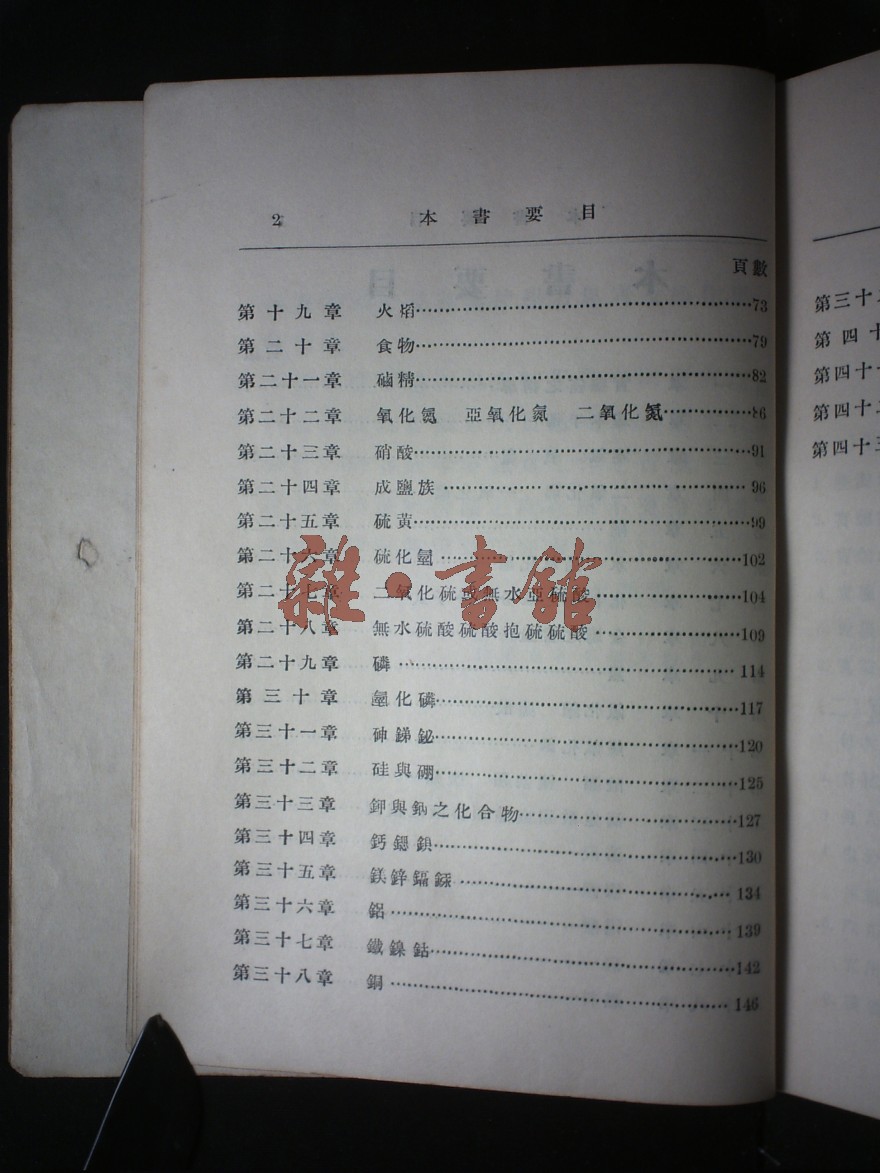 2 本書要目
頁數
第十九章 火焰……73
第二十章 食物……79
第二十一章 硇精……82
第二十二章 氧化氮 亞氧化氮 二氧化氮……86
第二十三章 硝酸……91
第二十四章 成鹽族……96
第二十五章 硫黃……99
第二十六章 硫化氫……102
第二十七章 二氧化硫或無水亞硫酸……104
第二十八章 無水硫酸硫酸抱硫硫酸……109
第二十九章 磷……114
第三十章 氫化磷……117
第三十一章 砷銻鉍……120
第三十二章 硅與硼……125
第三十三章 鉀與鈉之化合物……127
第三十四章 鈣鍶鋇……130
第三十五章 鎂鋅鎘……134
第三十六章 鋁……139
第三十七章 鐵鎳鈷……142
第三十八章 銅……146
雜·書館
第三十
第四十
第四十
第四十
第四十三